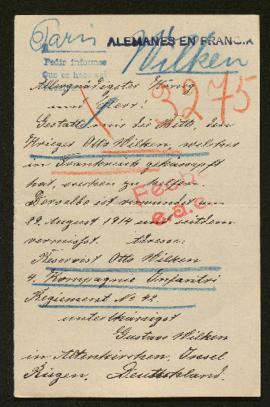 Paris
ALEMANES EN FRANCIA
Wilken
Pedir informes
Allergnädigster König
und Herr!
3275
Gestatte mir die Bitte, den
Krieger Otto Wilken, welcher
in Frankreich gekämpft
hat, suchen zu helfen.
Derselbe ist verwundet am
22. August 1914 und seitdem
vermisst. Adresse:
Reservist Otto Wilken
4. Kompagnie Infantri
Regiement No 42.
unterthänigst
Gustav Wilken
in Altenkirchen, Insel
Rügen. Deutschland.